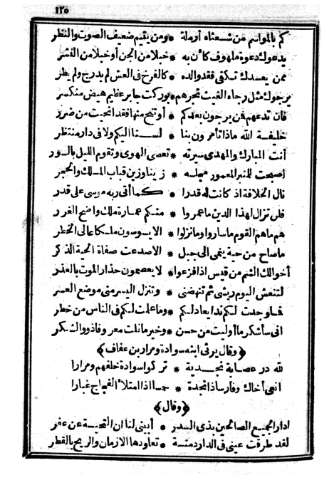 ١٢٥
كم بالمواسم من شعثاء أرملة * ومن يتيم ضعيف الصوت والنظر
يدعوك دعوة ملهوف كأن به * خبلا من الجن أو خبلا من النشر
ممن يعدك تكفي فقد والده * كالفرخ في العش لم يدرج ولم يطر
يرجوك مثل رجاء الغيث تجبرهم * بوركت جابر عظيم هيض منكسر
فان تدعهم فمن يرجون بعدكم * أو تنج منها فقد أنجيت من ضرر
خليفة الله ماذا تأمرون بنا * لسنا اليكم ولا في دار منتظر
أنت المبارك والمهدي سيرته * تعصى الهوى وتقوم الليل بالسور
أصبحت للمنبر المعمور مجلسه * زينا وزين قباب الملك والحجر
نال الخلافة اذ كانت له قدرا * كما أتى ربه موسى على قدر
فلن تزال لهذا الدين ما عمروا * منكم عمارة ملك واضح الغرر
هم ما هم القوم ما ساروا وما نزلوا * الا يسوسون ملكا عالي الخطر
ما صاح من حية ينمى الى جبل * الا صدعت صفاة الحية الذكر
أخوالك الشم من قيس اذا فزعوا * لا يعصمون حذار الموت بالعذر
لتنعش اليوم ريشي ثم تنهضني * وتنزل اليسر مني موضع العسر
فما وجدت لكم ندا يعادلكم * وما علمت لكم في الناس من خطر
اني سأشكر ما أوليت من حسن * وخير ما نلت معروفا ذوو الشكر
﴿وقال يرثي ابنه سوادة ومرار بن عفاف﴾
لله در عصابة نجدية * تركوا سوادة خلفهم ومرارا
أنعى أخاك وفارسا ذا نجدة * حسا اذا امتلأ الفجاج غبارا
﴿وقال﴾
أدار الجميع الصالحين بذي السدر * أبيني لنا ان التحية عن عفر
لقد طرفت عيني في الدار دمنة * تعاورها الازمان والريح بالقطر